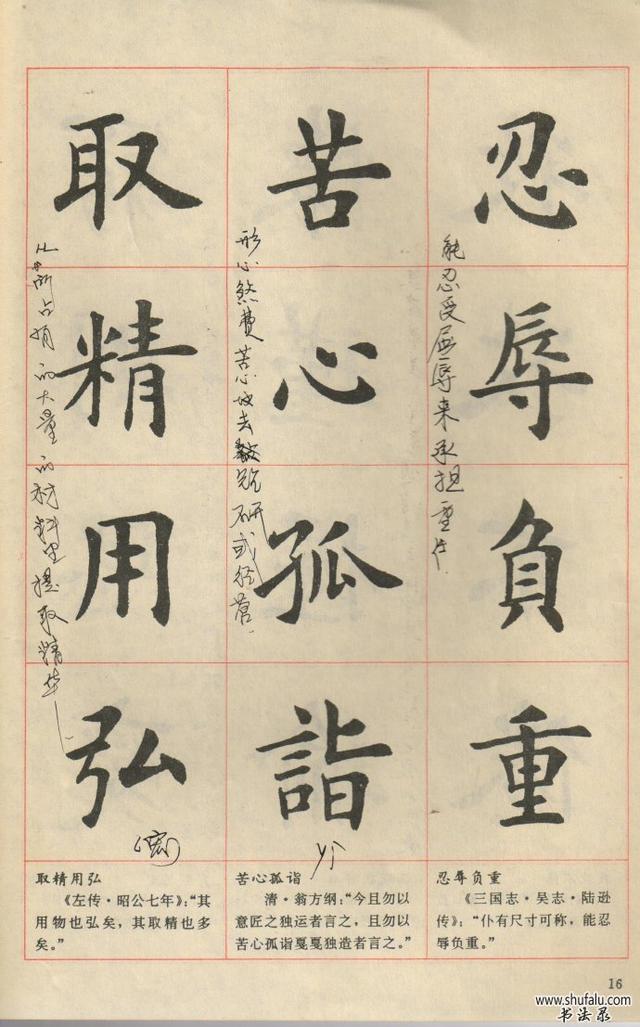 忍辱負重
能忍受屈辱来承担重任
苦心孤詣
苦心地去
研或经营
取精用弘
占有的大量的材料里提取精华
(宏)
忍辱负重
《三国志·吴志·陆逊
传》:“仆有尺寸可称,能忍
辱负重。”
苦心孤诣
清·翁方纲:“今且勿以
意匠之独运者言之,且勿以
苦心孤诣戛戛独造者言之。”
取精用弘
《左传·昭公七年》:“其
用物也弘矣,其取精也多
矣。”
16
www.shufalu.com
书法录